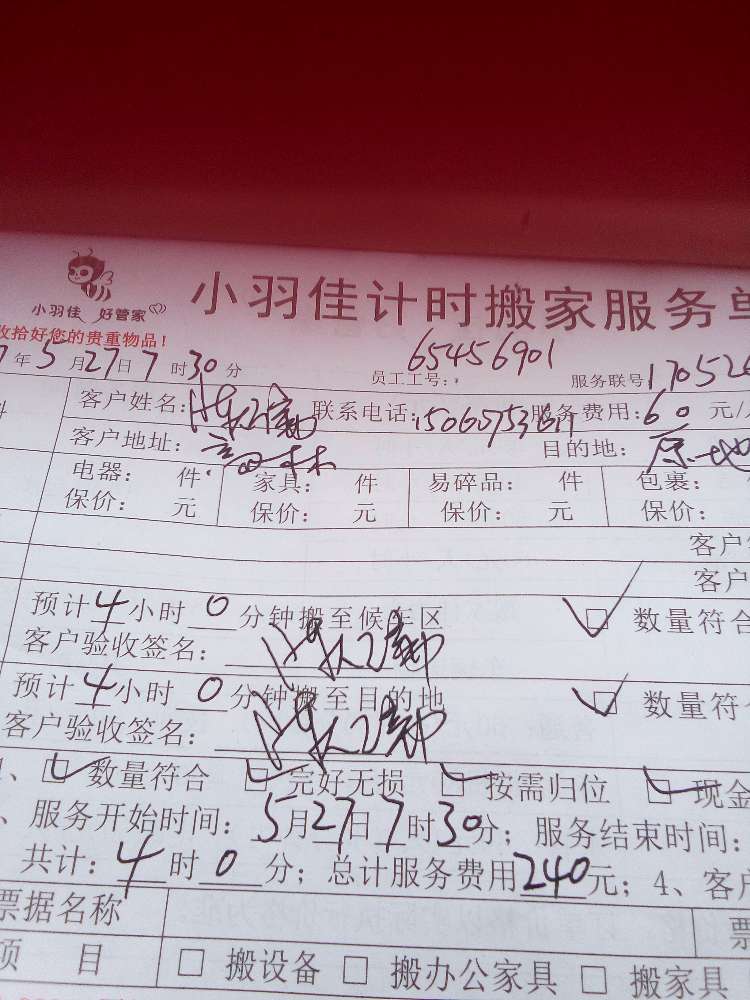 小羽佳 好管家
小羽佳计时搬家服务单
收拾好您的贵重物品！
年5月27日7时30分 员工工号：65456901 服务联号170526
客户姓名： 联系电话： 服务费用：60元/
客户地址：高林 目的地：原地
电器： 件 家具： 件 易碎品： 件 包裹：
保价： 元 保价： 元 保价： 元 保价：
客户
客户
预计4小时0分钟搬至候车区 数量符合
客户验收签名：
预计4小时0分钟搬至目的地 数量符
客户验收签名：
、数量符合 完好无损 按需归位 现金
、服务开始时间：5月27日7时30分；服务结束时间：
共计：4时0分；总计服务费用240元；4、客户
票据名称 票
项目 搬设备 搬办公家具 搬家具